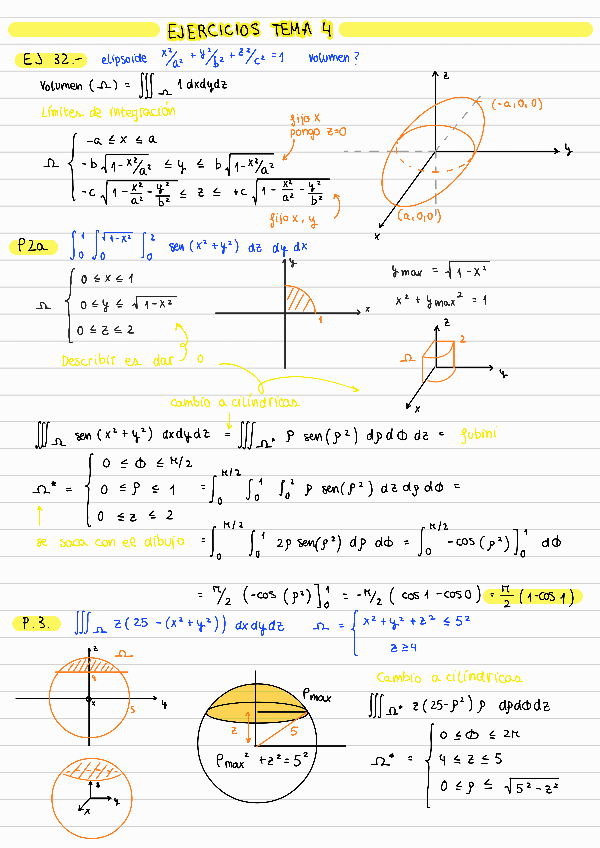 EJERCICIOS TEMA 4
EJ 32.- elipsoide x²/a² + y²/b² + z²/c² = 1 volumen?
Volumen (Ω) = ∭_Ω 1 dxdydz
Límites de integración
Ω { -a ≤ x ≤ a
-b√(1-x²/a²) ≤ y ≤ b√(1-x²/a²)
-c√(1-x²/a²-y²/b²) ≤ z ≤ +c√(1-x²/a²-y²/b²)
fijo x
pongo z=0
fijo x, y
z
(-a,0,0)
y
(a,0,0)
x
P2a ∫₀¹ ∫₀^√(1-x²) ∫₀² sen(x²+y²) dz dy dx
Ω { 0 ≤ x ≤ 1
0 ≤ y ≤ √(1-x²)
0 ≤ z ≤ 2
Describir es dar o
y
x
1
y max = √(1-x²)
x² + y max² = 1
z
2
Ω
y
x
cambio a cilíndricas
∭_Ω sen(x²+y²) dxdydz = ∭_Ω* ρ sen(ρ²) dρ dΦ dz = fubini
Ω* = { 0 ≤ Φ ≤ π/2
0 ≤ ρ ≤ 1
0 ≤ z ≤ 2
= ∫₀^π/2 ∫₀¹ ∫₀² ρ sen(ρ²) dz dρ dΦ =
se saca con el dibujo = ∫₀^π/2 ∫₀¹ 2ρ sen(ρ²) dρ dΦ = ∫₀^π/2 -cos(ρ²)]₀¹ dΦ
= π/2 (-cos(ρ²)]₀¹ = -π/2 (cos1 - cos0) = π/2 (1-cos1)
P.3. ∭_Ω z(25-(x²+y²)) dxdydz Ω = { x²+y²+z² ≤ 5²
z ≥ 4
z
Ω
4
x
5
y
Cambio a cilíndricas
∭_Ω* z(25-ρ²) ρ dρdΦdz
ρmax
z
5
ρmax² + z² = 5²
Ω* = { 0 ≤ Φ ≤ 2π
4 ≤ z ≤ 5
0 ≤ ρ ≤ √(5²-z²)
x
y